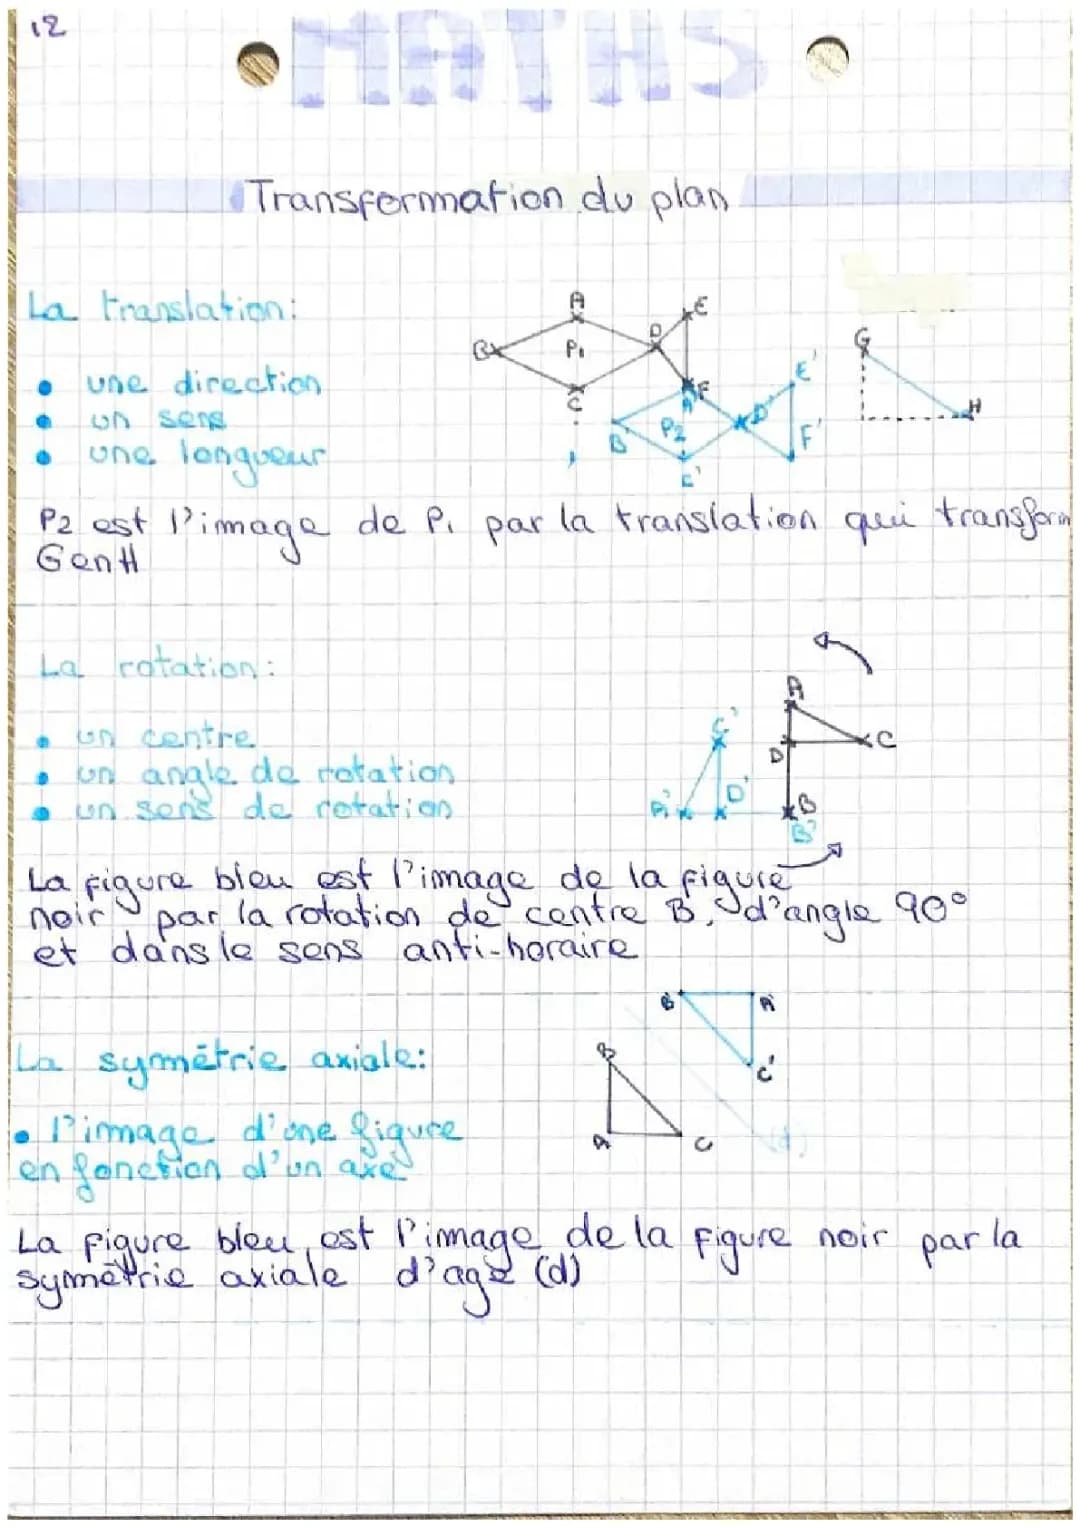 12
MATHS
Transformation du plan
La translation:
• une direction
• un sens
• une longueur
A
B
P1
D
E
C
F
A'
B'
P2
D'
E'
F'
C'
G
H
P2 est l'image de P1 par la translation qui transform
G en H
La rotation:
• un centre
• un angle de rotation
• un sens de rotation
A
D
C
B
B'
C'
A'
D'
La figure bleu est l'image de la figure
noir par la rotation de centre B, d'angle 90°
et dans le sens anti-horaire
La symétrie axiale:
• l'image d'une figure
en fonction d'un axe
B
A
C
B'
A'
C'
(d)
La figure bleu est l'image de la figure noir par la
symétrie axiale d'age (d)